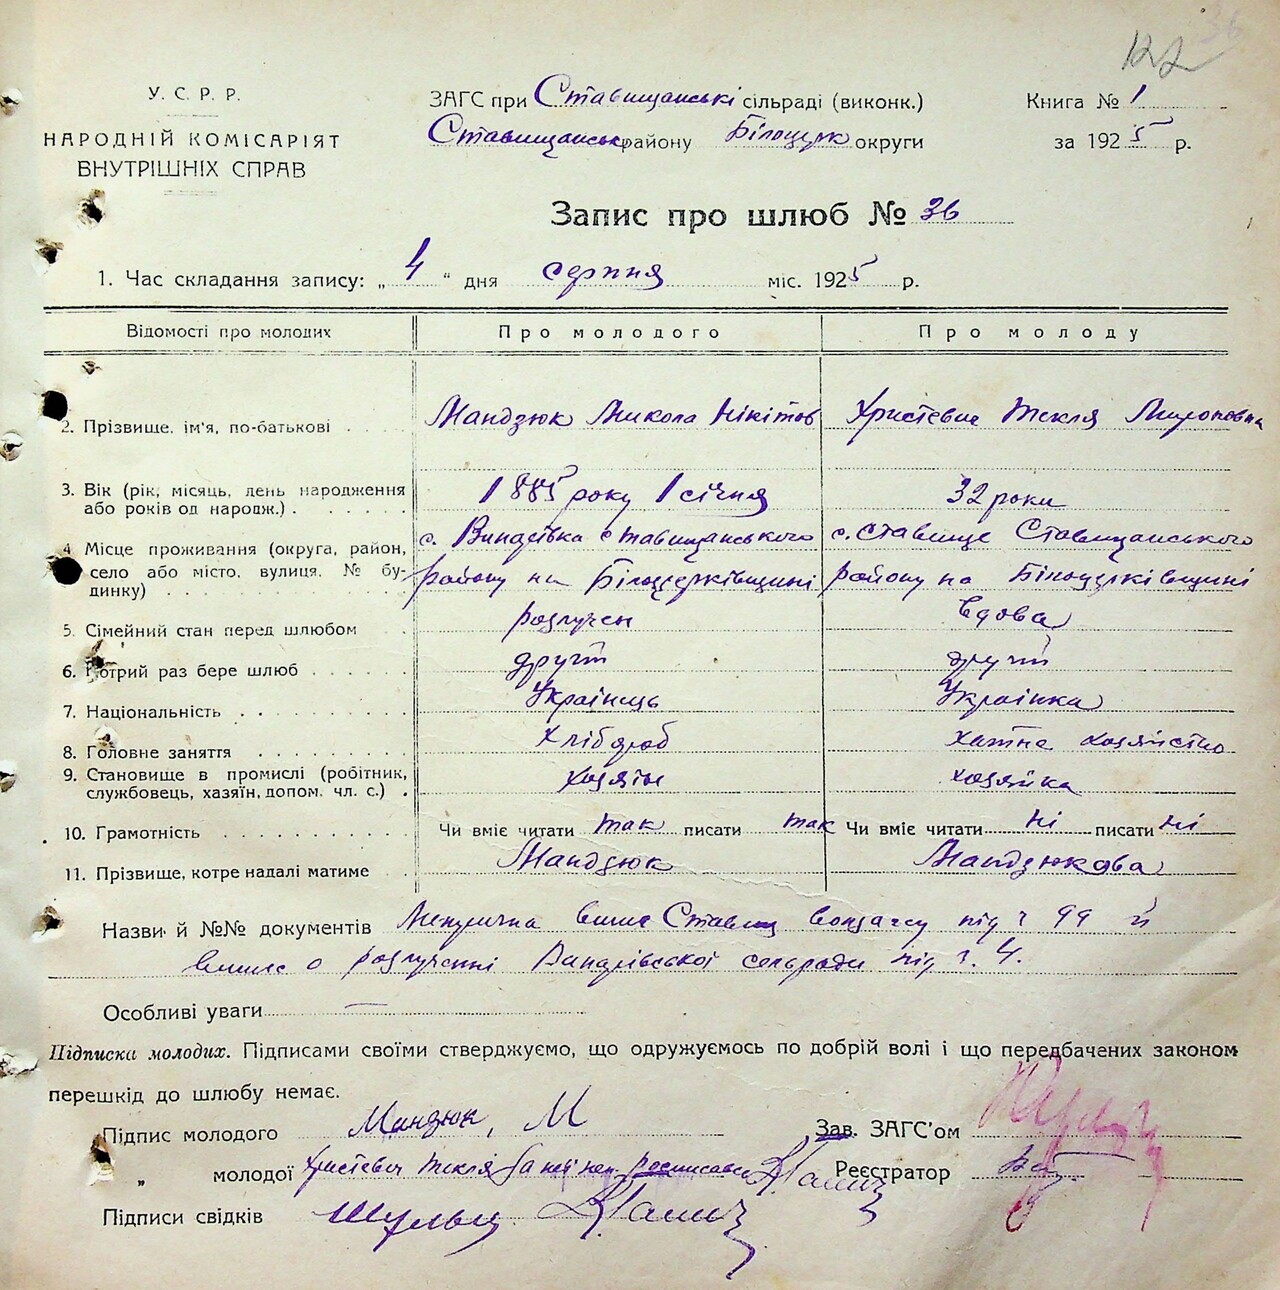 122
У. С. Р. Р.
НАРОДНІЙ КОМІСАРІЯТ
ВНУТРІШНІХ СПРАВ
ЗАГС при Ставищанські сільраді (виконк.)
Ставищанськ району Білоцерк округи
Книга № 1
за 1925 р.
Запис про шлюб № 36
1. Час складання запису: „4“ дня серпня міс. 1925 р.
Відомості про молодих Про молодого Про молоду
2. Прізвище, ім'я, по-батькові . . . . Мандзюк Микола Нікітов Христевич Текля Мироновна
3. Вік (рік, місяць, день народження або років од народж.) . . . . . . 1885 року 1 січня 32 роки
4. Місце проживання (округа, район, село або місто, вулиця, № будинку) . . . . . . . . . .
с. Винарівка Ставищанського району на Білоцерківщині
с. Ставище Ставищанського району на Білоцерківщині
5. Сімейний стан перед шлюбом . . розлучен Вдова
6. Котрий раз бере шлюб . . . . . . другий другий
7. Національність . . . . . . . . . . Українець Українка
8. Головне заняття . . . . . . . . . Хлібороб хатнє хозяйство
9. Становище в промислі (робітник, службовець, хазяїн, допом. чл. с.) . хозяїн хозяйка
10. Грамотність . . . . . . . . . . Чи вміє читати так писати так Чи вміє читати ні писати ні
11. Прізвище, котре надалі матиме . . Мандзюк Мандзюкова
Назви й №№ документів випис Ставищ під ч 99 й
випис о розлученні сельради під ч. 4.
Особливі уваги —
Підписка молодих. Підписами своїми стверджуємо, що одружуємось по добрій волі і що передбачених законом
перешкід до шлюбу немає.
Підпис молодого Мандзюк, М
Зав. ЗАГС'ом
„ молодої Христевич Текля за неї неп. росписався
Реєстратор
Підписи свідків